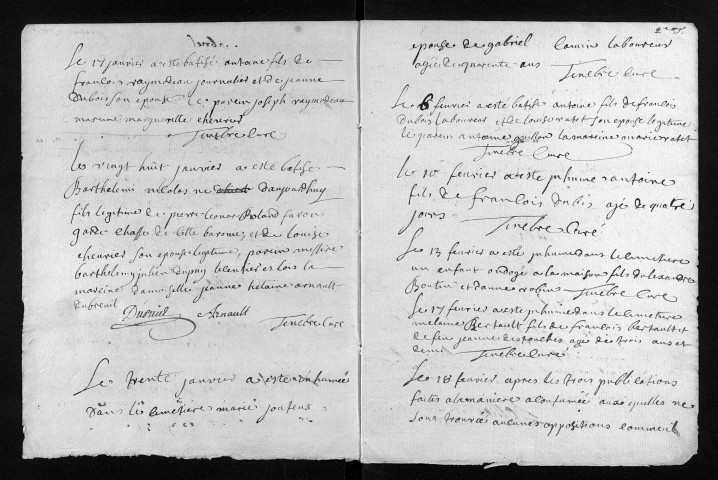 Le 17 janvier a este batisé antoine fils de
francois raymdeau journalier et de jeanne
dubois son epouse le parein joseph raymdeau
mareine marguerille chevrier
Tenebre Curé
le vingt huit janvier a este batisé
Barthelemi nicolas né daujourdhuy
fils legitime de pierre leonor Roland
garde chasse de cette baronie et de louise
chevrier son epouse legitime, parein messire
barthelemy julien dupuy
mareine damoiselle jeanne helaine arnault
dubreuil
Dupuid Arnault Tenebre Curé
Le trente janvier a este inhumée
dans le cimetière marie joutens
epouse de gabriel Camin laboureur
agée de quarente ans Tenebre Curé
Le 6 fevrier a este batisé antoine fils de francois
dubois laboureur et de louise ratet son epouse legitime
le parein antoine la mareine marie ratet
Tenebre Curé
le 10 fevrier a este inhumé antoine
fils de francois dubois agé de quatre
jours Tenebre Curé
Le 13 fevrier a este inhumé dans le cimetiere
un enfant ondoyé a la maison fils dalexandre
Boutin et danne robin Tenebre Curé
Le 17 fevrier a este inhumé dans le cimetiere
Bertault fils de francois bertault et
de feue jeanne destouches agé de trois ans et
demi Tenebre Curé
Le 18 fevrier apres les trois publications
faites a la maniere acoutumée aux quelles ne
sont trouvée aucunes oppositions comme il